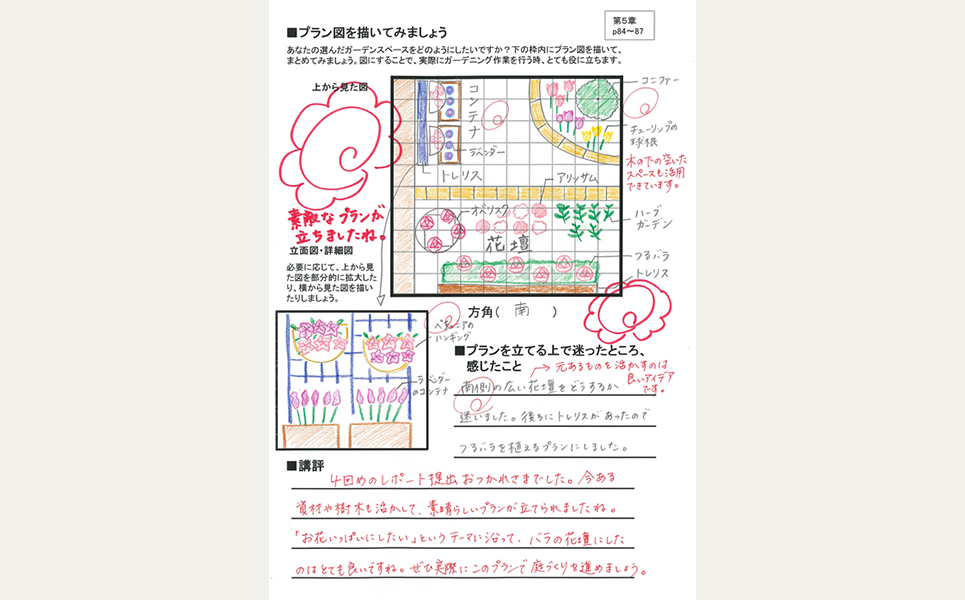 第5章
p84〜87
■プラン図を描いてみましょう
あなたの選んだガーデンスペースをどのようにしたいですか？下の枠内にプラン図を描いて、
まとめてみましょう。図にすることで、実際にガーデニング作業を行う時、とても役に立ちます。
上から見た図
コンテナ
ラベンダー
トレリス
コニファー
チューリップの
球根
木の下の空いた
スペースも活用
できています。
アリッサム
オベリスク
花壇
ハーブ
ガーデン
つるバラ
トレリス
素敵なプランが
立ちましたね。
立面図・詳細図
必要に応じて、上から見
た図を部分的に拡大した
り、横から見た図を描い
たりしましょう。
方角( 南 )
ペチュニアの
ハンギング
ラベンダー
のコンテナ
■プランを立てる上で迷ったところ、
感じたこと
元あるものを活かすのは
良いアイデア
です。
南側の広い花壇をどうするか
迷いました。後ろにトレリスがあったので
つるバラを植えるプランにしました。
■講評
4回めのレポート提出おつかれさまでした。今ある
資材や樹木も活かして、素晴らしいプランが立てられましたね。
「お花いっぱいにしたい」というテーマに沿って、バラの花壇にした
のはとても良いですね。ぜひ実際にこのプランで庭づくりを進めましょう。